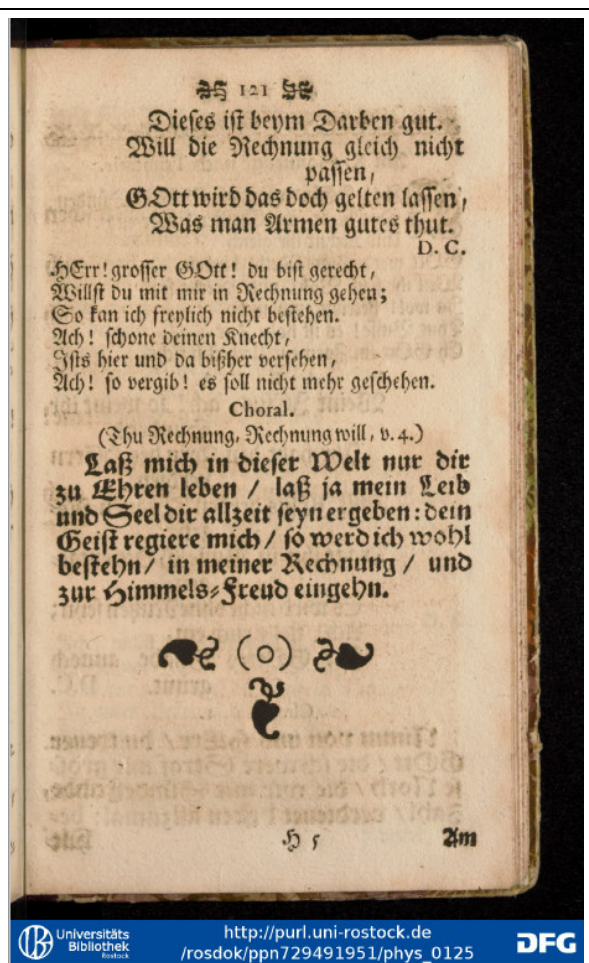 121
Dieses ist beym Darben gut.
Will die Rechnung gleich nicht
passen,
GOtt wird das doch gelten lassen,
Was man Armen gutes thut.
D. C.
HErr! grosser GOtt! du bist gerecht,
Willst du mit mir in Rechnung gehen;
So kan ich freylich nicht bestehen.
Ach! schone deinen Knecht,
Ists hier und da bißher versehen,
Ach! so vergib! es soll nicht mehr geschehen.
Choral.
(Thu Rechnung, Rechnung will, v. 4.)
Laß mich in dieser Welt nur dir
zu Ehren leben / laß ja mein Leib
und Seel dir allzeit seyn ergeben: dein
Geist regiere mich / so werd ich wohl
bestehn / in meiner Rechnung / und
zur Himmels-Freud eingehn.
(o)
H 5
Am
Universitäts
Bibliothek
Rostock
http://purl.uni-rostock.de
/rosdok/ppn729491951/phys_0125
DFG